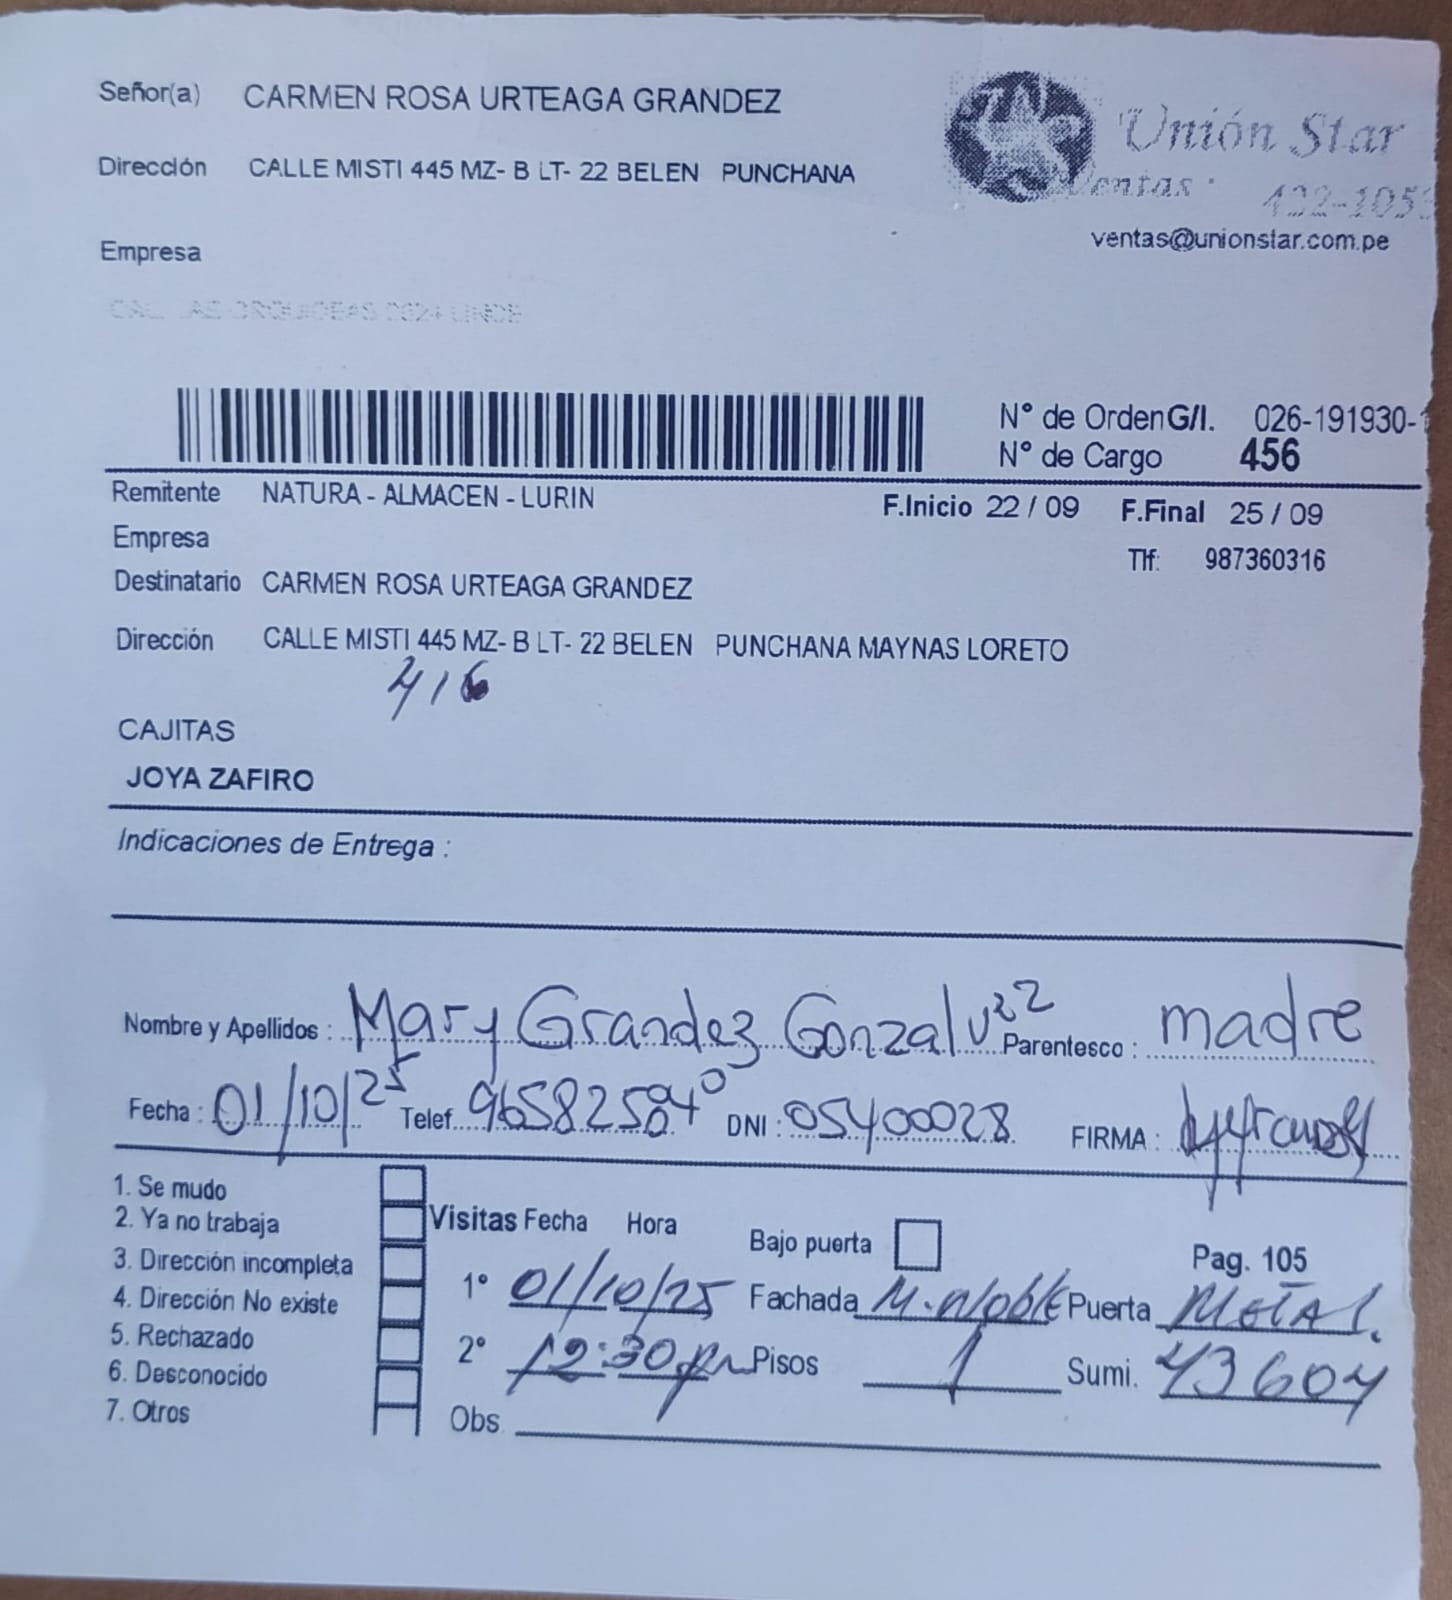 Señor(a) CARMEN ROSA URTEAGA GRANDEZ
Unión Star
Dirección CALLE MISTI 445 MZ- B LT- 22 BELEN PUNCHANA
Ventas: 422-105
ventas@unionstar.com.pe
Empresa
N° de Orden G/I. 026-191930-1
N° de Cargo 456
Remitente NATURA - ALMACEN - LURIN F.Inicio 22 / 09 F.Final 25 / 09
Empresa Tlf: 987360316
Destinatario CARMEN ROSA URTEAGA GRANDEZ
Dirección CALLE MISTI 445 MZ- B LT- 22 BELEN PUNCHANA MAYNAS LORETO
416
CAJITAS
JOYA ZAFIRO
Indicaciones de Entrega :
Nombre y Apellidos : Mary Grandez Gonzalvez Parentesco : madre
Fecha : 01/10/25 Telef. DNI : 05400028 FIRMA :
1. Se mudo
2. Ya no trabaja Visitas Fecha Hora Bajo puerta Pag. 105
3. Dirección incompleta 1° 01/10/25 Fachada M.Noble Puerta Metal.
4. Dirección No existe
5. Rechazado 2° 12:30pm Pisos 1 Sumi. 43604
6. Desconocido
7. Otros Obs.